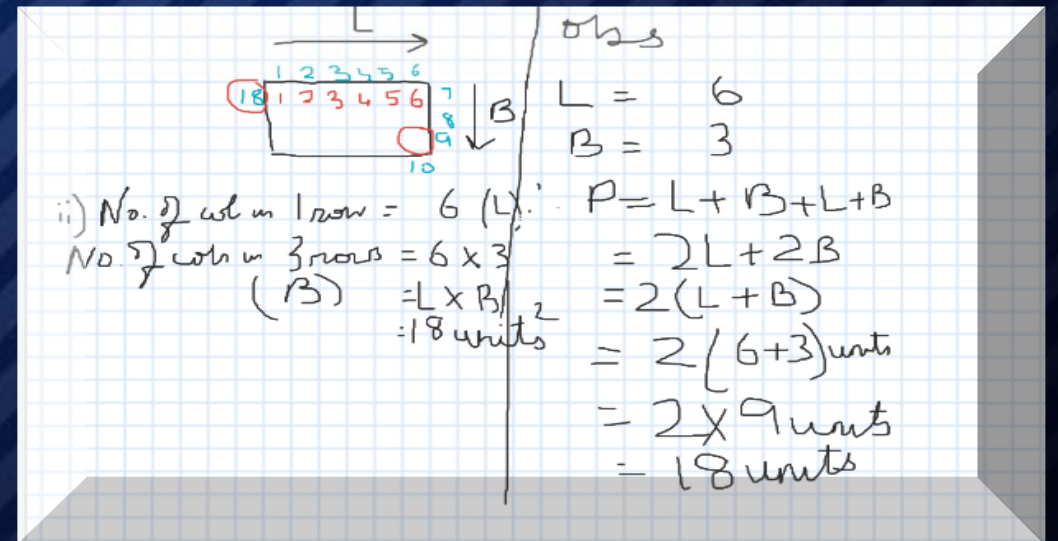 L
1 2 3 4 5 6
18 1 2 3 4 5 6 7
8
9
10
B
ii) No. of col in 1 row = 6 (L).
No. of cols in 3 rows = 6 x 3
(B) = L x B
= 18 units²
obs
L = 6
B = 3
P = L + B + L + B
= 2L + 2B
= 2(L + B)
= 2(6+3) units
= 2 x 9 units
= 18 units